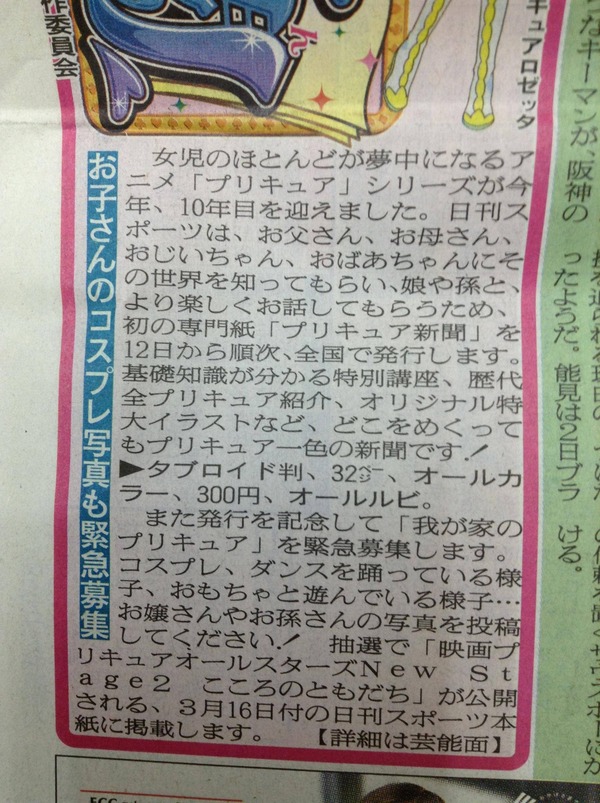 作委員会
ん
キュアロゼッタ
お子さんのコスプレ写真も緊急募集
女児のほとんどが夢中になるア
ニメ「プリキュア」シリーズが今
年、10年目を迎えました。日刊ス
ポーツは、お父さん、お母さん、
おじいちゃん、おばあちゃんにそ
の世界を知ってもらい、娘や孫と、
より楽しくお話してもらうため、
初の専門紙「プリキュア新聞」を
12日から順次、全国で発行します。
基礎知識が分かる特別講座、歴代
全プリキュア紹介、オリジナル特
大イラストなど、どこをめくって
もプリキュア一色の新聞です!
▶タブロイド判、32㌻、オールカ
ラー、300円、オールルビ。
また発行を記念して「我が家の
プリキュア」を緊急募集します。
コスプレ、ダンスを踊っている様
子、おもちゃと遊んでいる様子…
お嬢さんやお孫さんの写真を投稿
してください! 抽選で「映画プ
リキュアオールスターズNew St
age2 こころのともだち」が公開
される、3月16日付の日刊スポーツ本
紙に掲載します。 【詳細は芸能面】
なキーマンが、阪神の
ったようだ。能見は2日ブラ
ける。